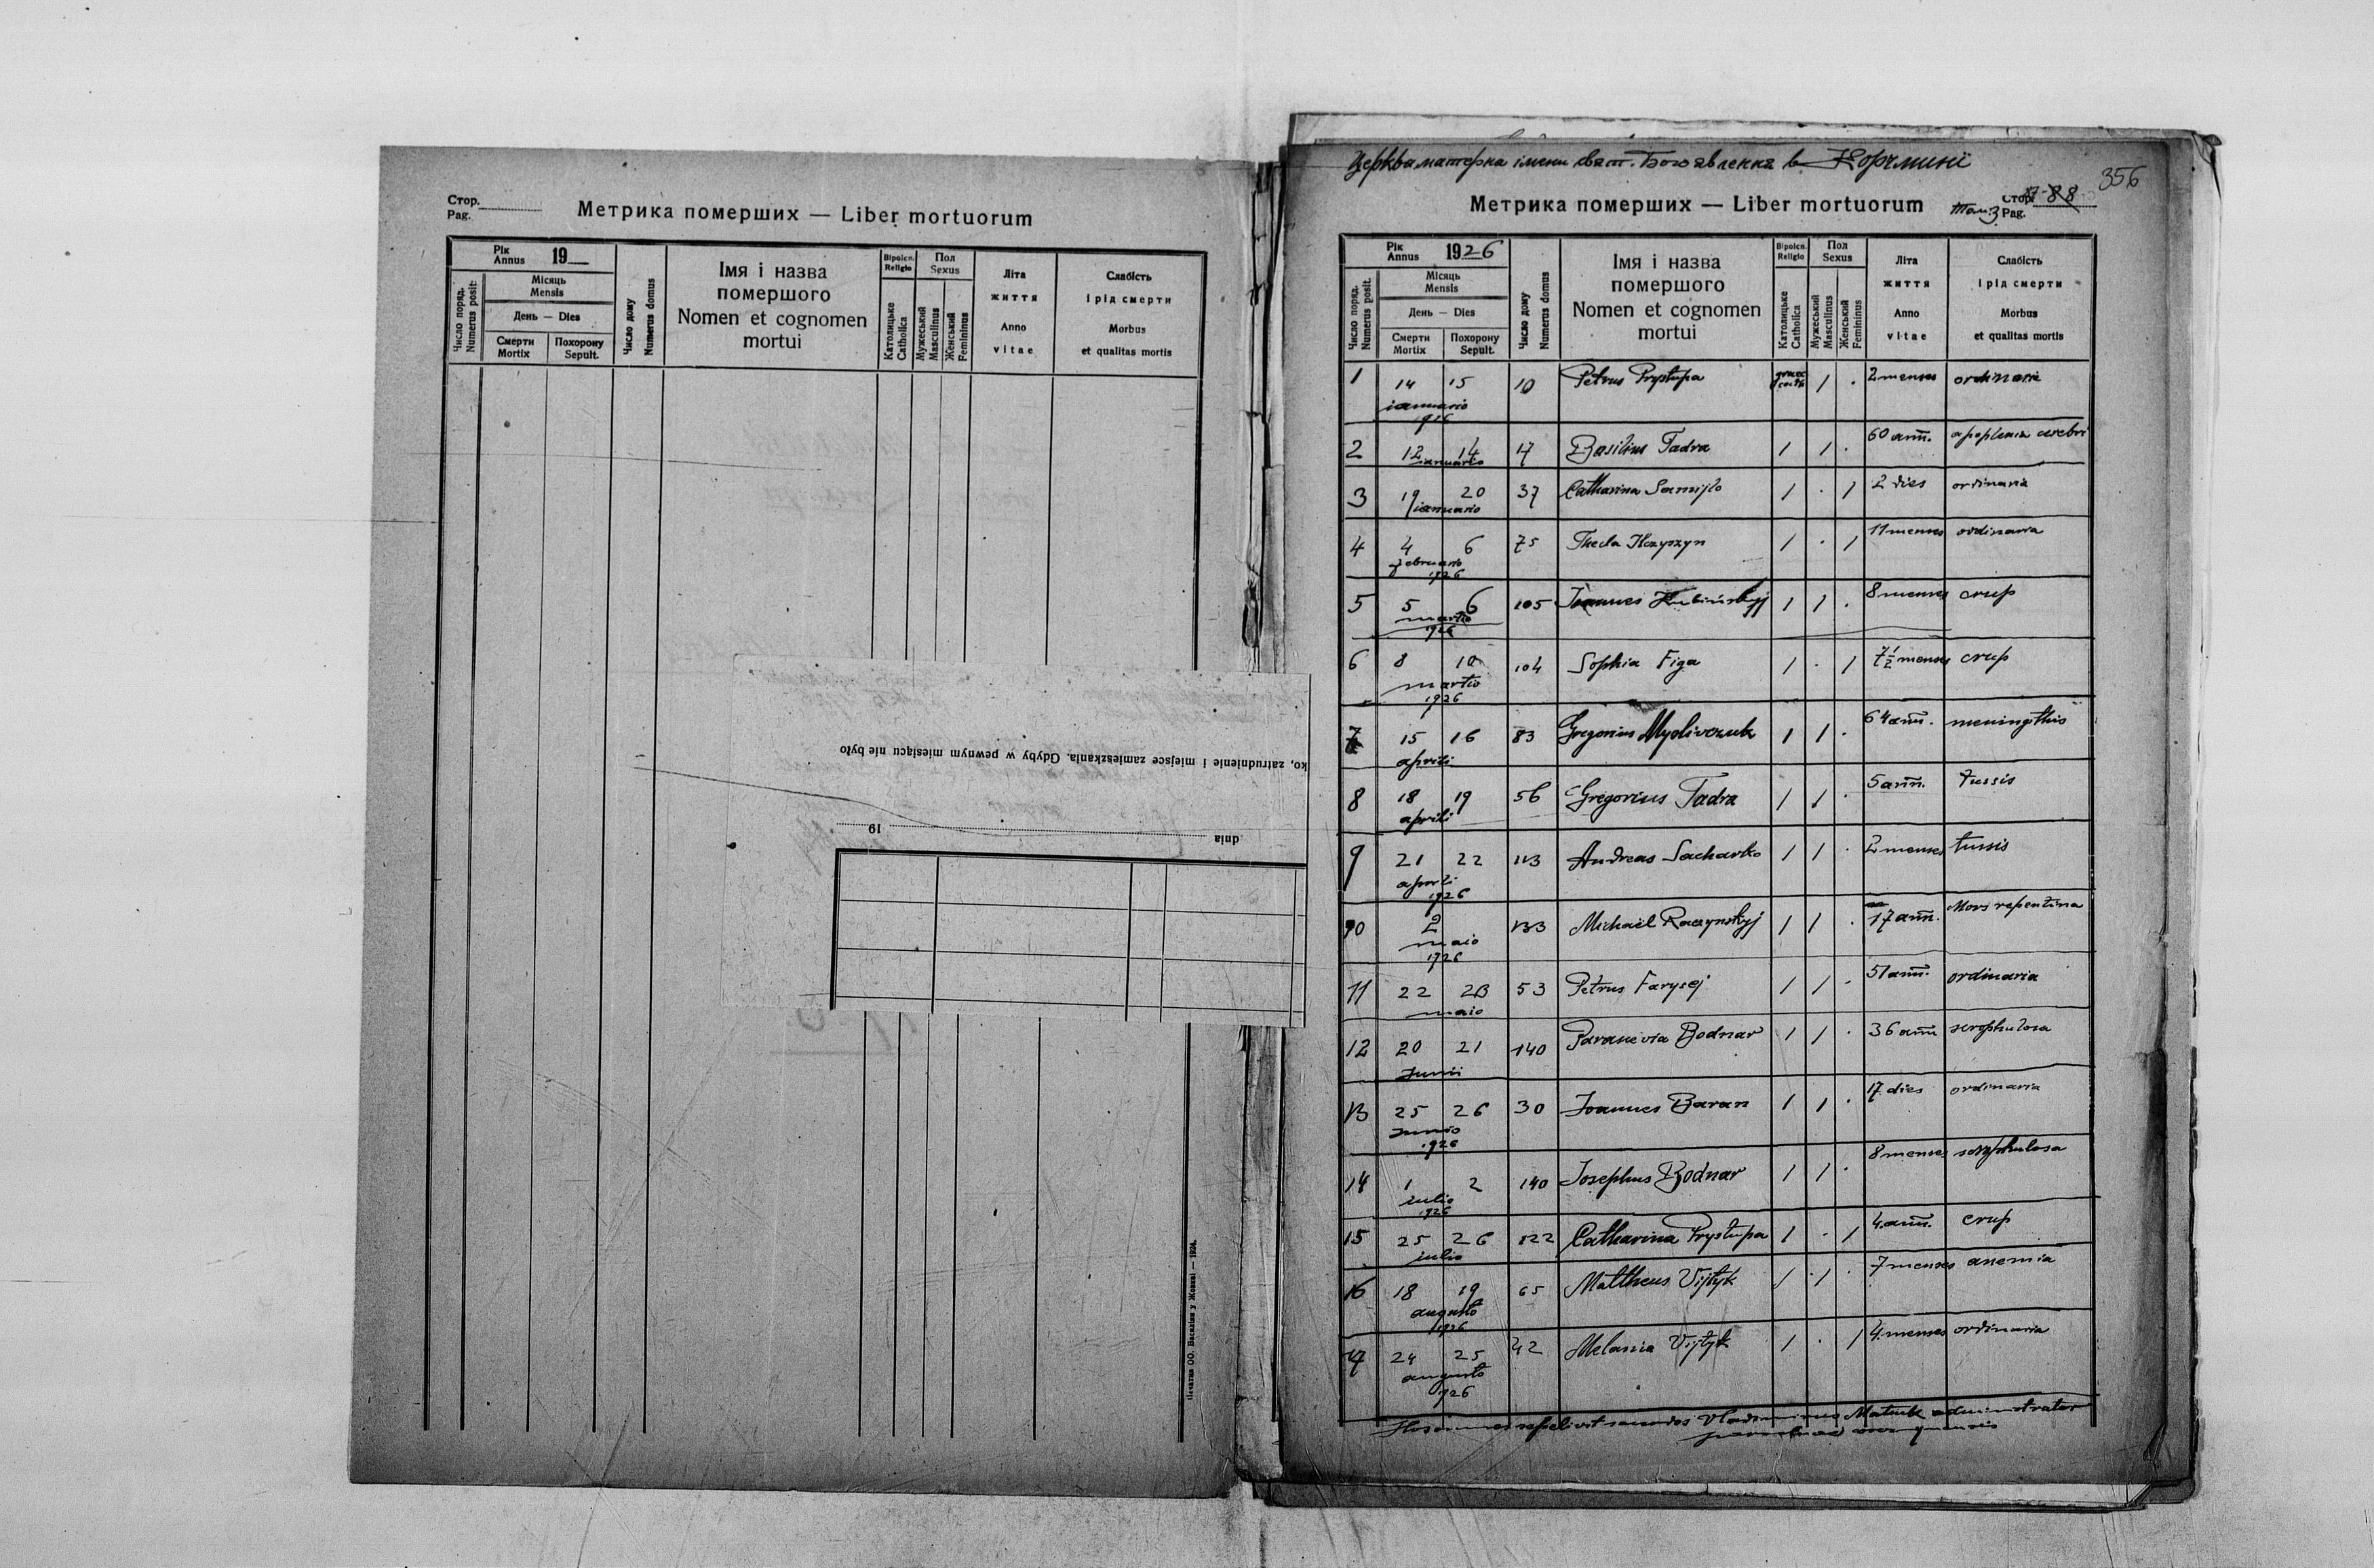 Стор.
Pag.
Метрика померших — Liber mortuorum
Рік
Annus 19
Місяць
Mensis
День — Dies
Смерти
Mortix
Похорону
Sepult.
Число поряд.
Numerus posit:
Число дому
Numerus domus
Імя і назва
помершого
Nomen et cognomen
mortui
Віроісп.
Religio
Католицьке
Catholica
Пол
Sexus
Мужеський
Masculinus
Женський
Femininus
Літа
життя
Anno
vitae
Слабість
і рід смерти
Morbus
et qualitas mortis
ko, zatrudnienie i miejsce zamieszkania. Gdyby w pewnym miesiącu nie było
dnia 19
Печатня ОО. Василіян у Жовкві — 1924.
Церква матерна імени свят. Богоявления в Корчмині
356
Метрика померших — Liber mortuorum
Том 3
Стор.
Pag. 88
Рік
Annus 1926
Місяць
Mensis
День — Dies
Смерти
Mortix
Похорону
Sepult.
Число поряд.
Numerus posit.
Число дому
Numerus domus
Імя і назва
помершого
Nomen et cognomen
mortui
Віроісп.
Religio
Католицьке
Catholica
Пол
Sexus
Мужеський
Masculinus
Женський
Femininus
Літа
життя
Anno
vitae
Слабість
і рід смерти
Morbus
et qualitas mortis
1 14 15 10 Petrus Prystupa graec cath / . 2 menses ordinaria
ianuario
1926
2 12 14 17 Basilius Tadra / / . 60 ann. apoplexia cerebri
ianuario
3 19 20 37 Catharina Samijlo / . / 2 dies ordinaria
ianuario
4 4 6 75 Thecla Ilczyszyn / . / 11 menses ordinaria
februario
1926
5 5 6 105 Ioannes / / . 8 menses crup
martio
1926
6 8 10 104 Sophia Figa / . / 7 1/2 menses crup
martio
1926
7 15 16 83 Gregorius Myslivczuk / / . 64 ann. meningithis
aprili
8 18 19 56 Gregorius Tadra / / . 5 ann. tussis
aprili
9 21 22 113 Andreas Sacharko / / . 2 menses tussis
aprili
1926
10 2 133 Michaël Raczynskyj / / . 17 ann. Mors repentina
maio
1926
11 22 23 53 Petrus Farysej / / . 51 ann. ordinaria
maio
12 20 21 140 Bodnar / / . 36 ann scrophulosa
Junii
13 25 26 30 Joannes Baran / / . 17 dies ordinaria
Junio
1926
14 1 2 140 Josephus Bodnar / / . 8 menses scrophulosa
iulio
1926
15 25 26 122 Catharina Prystupa / . / 4 ann. crup
iulio
16 18 19 65 Mattheus Vijtyk / / . 7 menses anemia
augusto
1926
17 24 25 42 Melania Vijtyk / . / 4 menses ordinaria
augusto
1926
Hos omnes sepelivit sacerdos Vladimirus Matiuk administrator